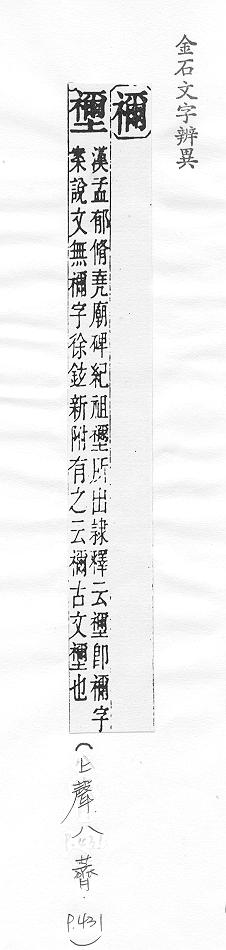 金石文字辨異
禰
⿰礻壐
漢孟郁脩堯廟碑紀祖⿰礻壐所出隸釋云⿰礻壐即禰字
案說文無禰字徐鉉新附有之云禰古文⿰礻壐也
(上聲.八薺.P.431)